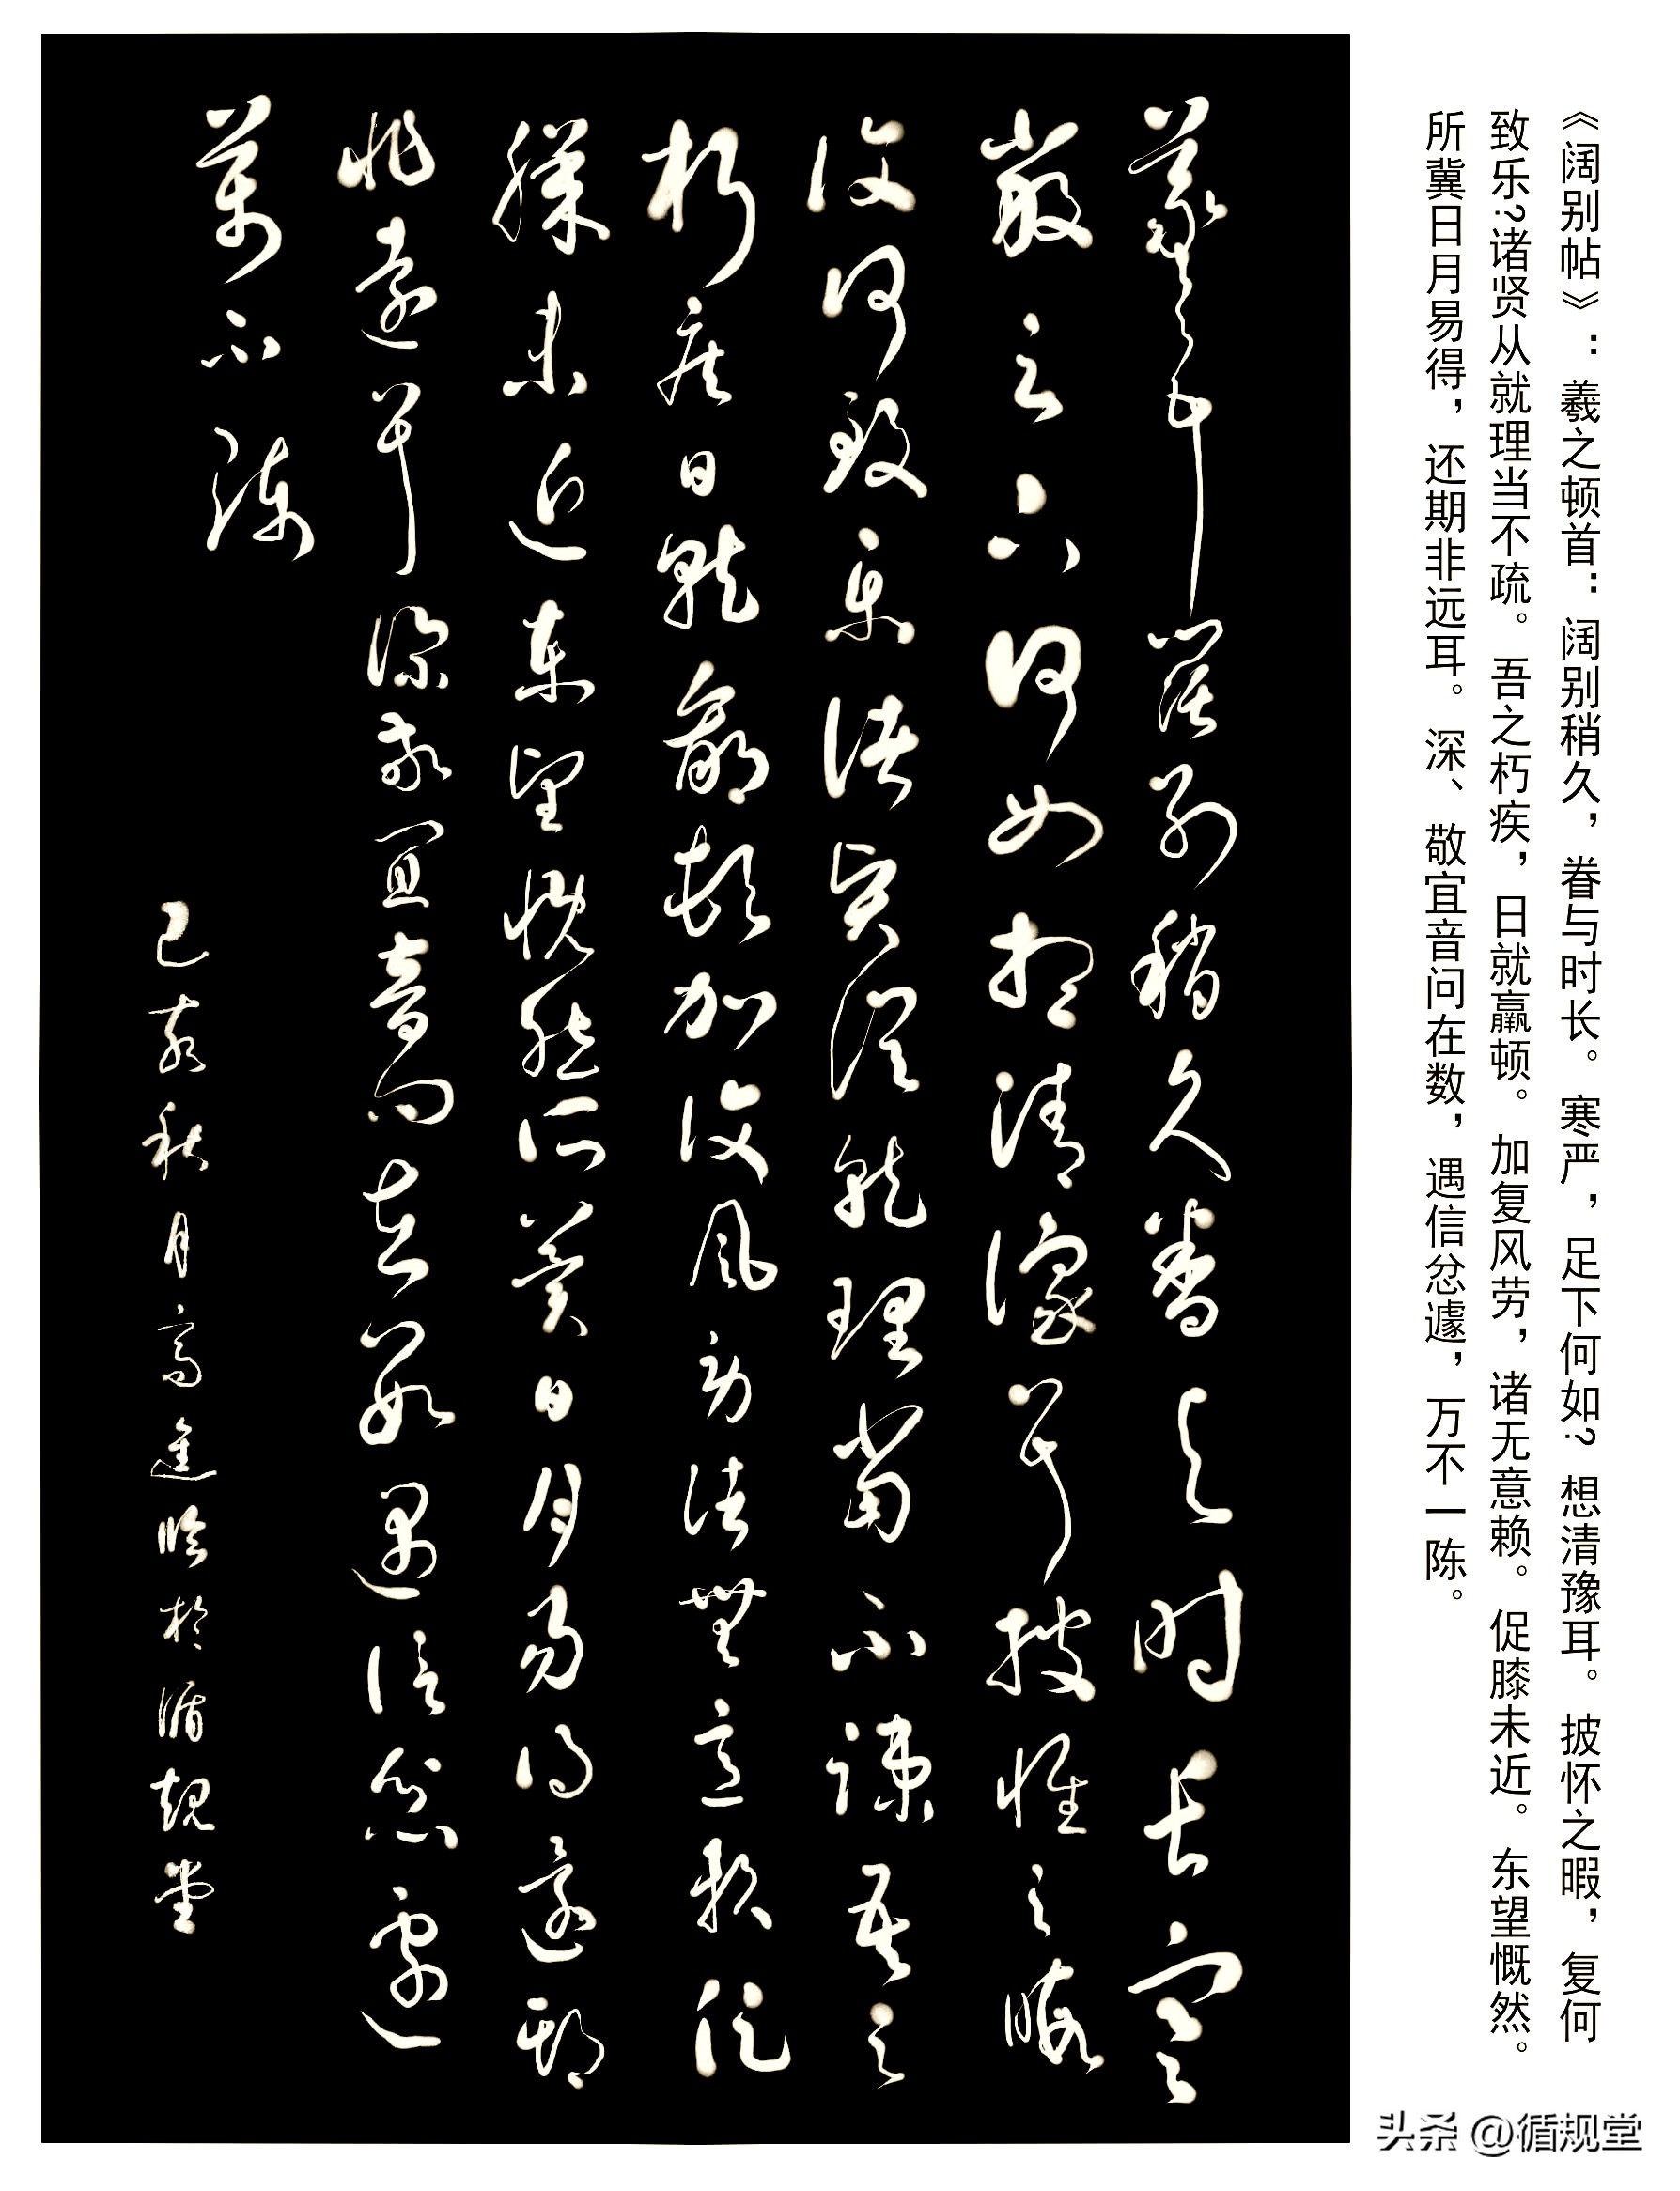 《阔别帖》：羲之顿首：阔别稍久，眷与时长。寒严，足下何如？想清豫耳。披怀之暇，复何
致乐?诸贤从就理当不疏。吾之朽疾，日就羸顿。加复风劳，诸无意赖。促膝未近。东望慨然。
所冀日月易得，还期非远耳。深、敬宜音问在数，遇信忿遽，万不一陈。
羲之頓首闊別稍久眷與時長寒
嚴足下何如想清豫耳披懷之暇
復何致樂諸賢從就理當不疎吾之
朽疾日就羸頓加復風勞諸無意賴促
膝未近東望慨然所冀日月易得還期
非遠耳深敬宜音問在數遇信忿遽
萬不一陳
己亥秋月高進臨於循規堂
头条 @循规堂